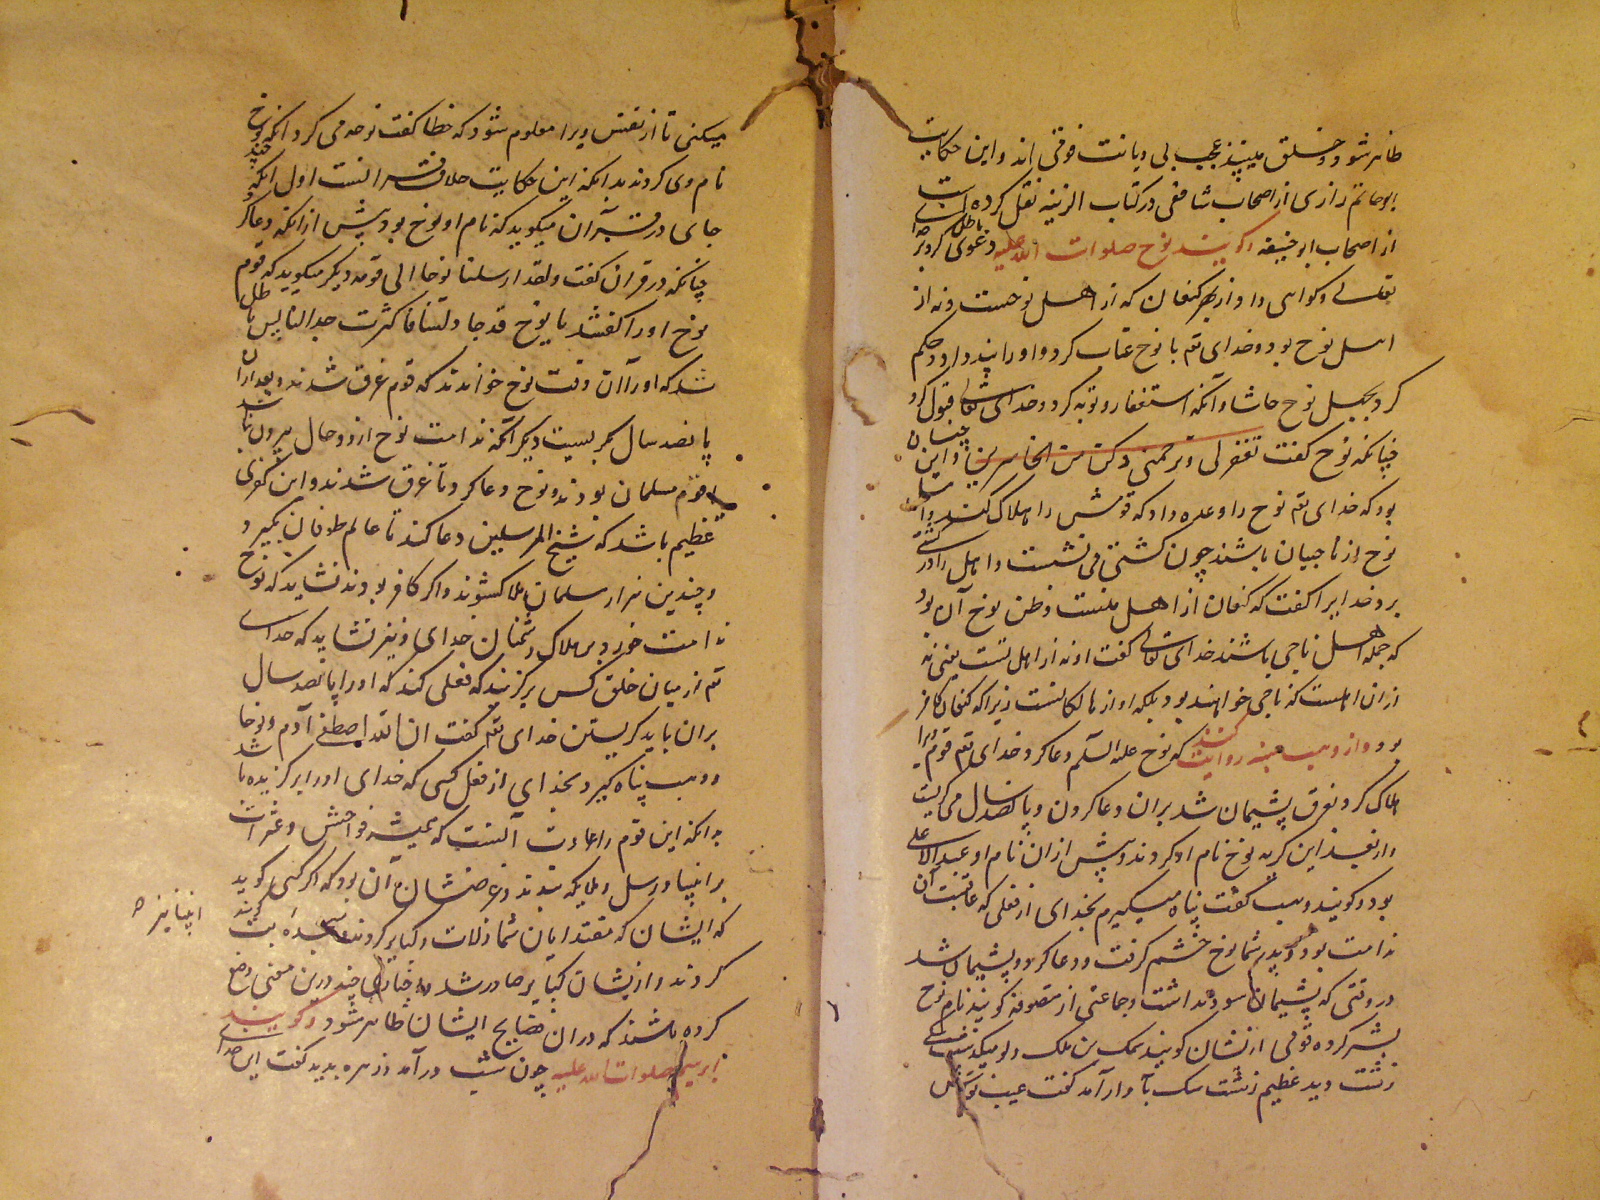 ظاهر شود و خلق میپندند عجب بی دیانت قومی اند و این حکایت
ابو حاتم رازی از اصحاب شافعی در کتاب الزینه نقل کرده است
از اصحاب ابو حنیفه گویند نوح صلوات الله علیه دعوی باطل کرد بر خدای
تعالی و گواهی داد از بهر کنعان که از اهل نوحست و نه از
اهل نوح بود و خدای تع با نوح عتاب کرد و او را پند داد و حکم
کرد بجهل نوح حاشا و آنکه استغفار و توبه کرد و خدای تعالی قبول کرد
چنانکه نوح گفت تغفر لی و ترحمنی اکن من الخاسرین و این چنان
بود که خدای تع نوح را وعده داد که قومش را هلاک کند و
نوح از ناجیان باشند چون کشتی می نشست و اهل را در کشتی
برد خدایرا گفت که کنعان از اهل منست و ظن نوح آن بود
که جمله اهل ناجی باشند خدای تعالی گفت او نه از اهل تست یعنی نه
از ان اهلست که ناجی خواهند بود بلکه او از هالکانست زیرا که کنعان کافر
بود و از وهب منبه روایت کنند که نوح علیه السلم دعا کرد خدای تع قوم ویرا
هلاک کرد و نعرق پشیمان شد بران دعا کردن و پانصد سال می گریست
و از بعد این گریه نوح نام او کردند و پیش ازان نام او عبد الاعلی
بود و گویند وهب گفت پناه میگیرم بخدای از فعلی که عاقبت آن
ندامت بود و پدر شما نوح خشم گرفت و دعا کرد و پشیمان شد
در وقتی که پشیمان سود نداشت و جماعتی از متصوفه گویند نام نوح
یشکر کرده قومی از ایشان گویند بن ملک و او میگذشت سگی
زشت دید عظیم زشت سگ بآواز آمد گفت عیب
میکنی تا از نفس ویرا معلوم شود که خطا گفت نوحه می کرد آنکه نوح
نام وی کردند بدانکه این حکایت خلاف قرانست اول آنکه چند
جای در قرآن میگوید که نام او نوح بود پیش از انکه دعا کرد
چنانکه در قران گفت و لقد ارسلنا نوحا الی قومه دیگر میگوید که قوم
نوح او را گفتند یا نوح قد جادلتنا فاکثرت جدالنا پس باطل
شد که او را آن وقت نوح خواندند که قوم غرق شدند و بعد از ان
پانصد سال بگریست دیگر آنکه ندامت نوح از دو حال بیرون نباشد
قوم مسلمان بودند و نوح دعا کرد تا غرق شدند و این کفری
عظیم باشد که شیخ المرسلین دعا کند تا عالم طوفان بگیرد
و چندین هزار مسلمان هلاک شوند و اگر کافر بودند نشاید که نوح
ندامت خورد بر هلاک دشمنان خدای و نیز نشاید که خدای
تع از میان خلق کس برگزیند که فعلی کند که او را پانصد سال
بران باید گریستن خدای تع گفت ان الله اصطفی آدم و نوحا
و وهب پناه گیرد بخدای از فعل کسی که خدای او را برگزیده باشد
بدانکه این قوم را عادت آنست که همیشه فواحش و عثرات
بر انبیا و رسل و ملایکه بندند و غرضشان آن بود که اگر کسی گوید
که ایشان که مقتدایان شما زلات و کبایر کردند گویند
انبیا نیز
کردند و از یشان کبایر صادر شد و حکایاتی چند درین معنی وضع
کرده باشند که دران فضایح ایشان ظاهر شود و گویند
ابرهیم صلوات الله علیه چون شب در آمد و زهره بدید گفت این خدای